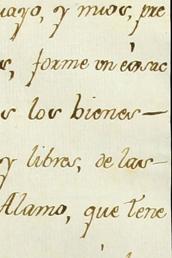 uayo, y mios, pre
s, forme un
s los bienes—
y libres, de las—
Alamo, que tene